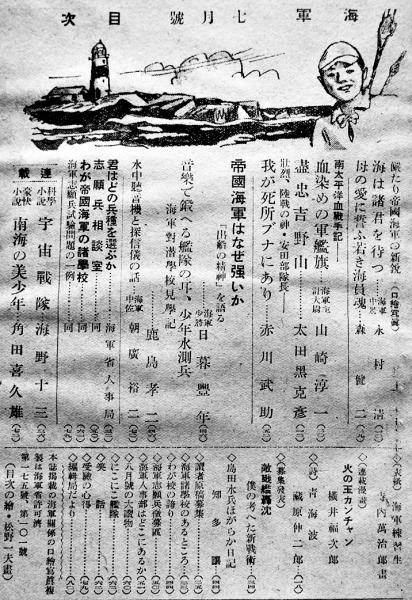 海軍 七月號 目次
儼たり帝國海軍の新銳 (口繪寫眞)
海は諸君を待つ 海軍中佐 永村清
母の愛に誓ふ若き海員魂 森健二
南太平洋血戰手記
血染めの軍艦旗 海軍主計大尉 山崎淳一
盡忠吉野山 太田黑克彥
壯烈、陸戰の神・安田部隊長
我が死所ブナにあり 赤川武助
帝國海軍はなぜ强いか
「出船の精神」を語る 海軍少將 日暮豐年
音樂で鍛へる艦隊の耳、少年水測兵
海軍對潛學校見學記 鹿島孝二
水中聽音機と探信儀の話 海軍中佐 朝廣裕二
君はどの兵種を選ぶか 海軍省人事局
志願兵相談室 同
わが帝國海軍の諸學校 同
海軍志願兵試驗問題の一例 同
連載
科學小說 宇宙戰隊 海野十三
豪快小說 南海の美少年 角田喜久雄
(表紙) 海軍練習生 内萬治郎畫
(連載漫談)
火の玉カンチャン 橫井福次郎
(詩) 靑海波 藏原伸二郎
(募集發表)
敵戰艦轟沈 僕の考へた新戰術
島田水兵ほがらか日記 知多讓
讀者原稿募集
海軍諸學校のあるところ
わが校の誇り
海軍志願兵徵募區
海軍人事部はどこにあるか
八月號の大讀物
にこにこ艦隊
笑話
受驗の心得
編輯局だより
本誌揭載の海軍關係の口繪寫眞複製は海軍省許可濟
第一七五號、第一〇一號
(目次の繪・松野一夫畫)